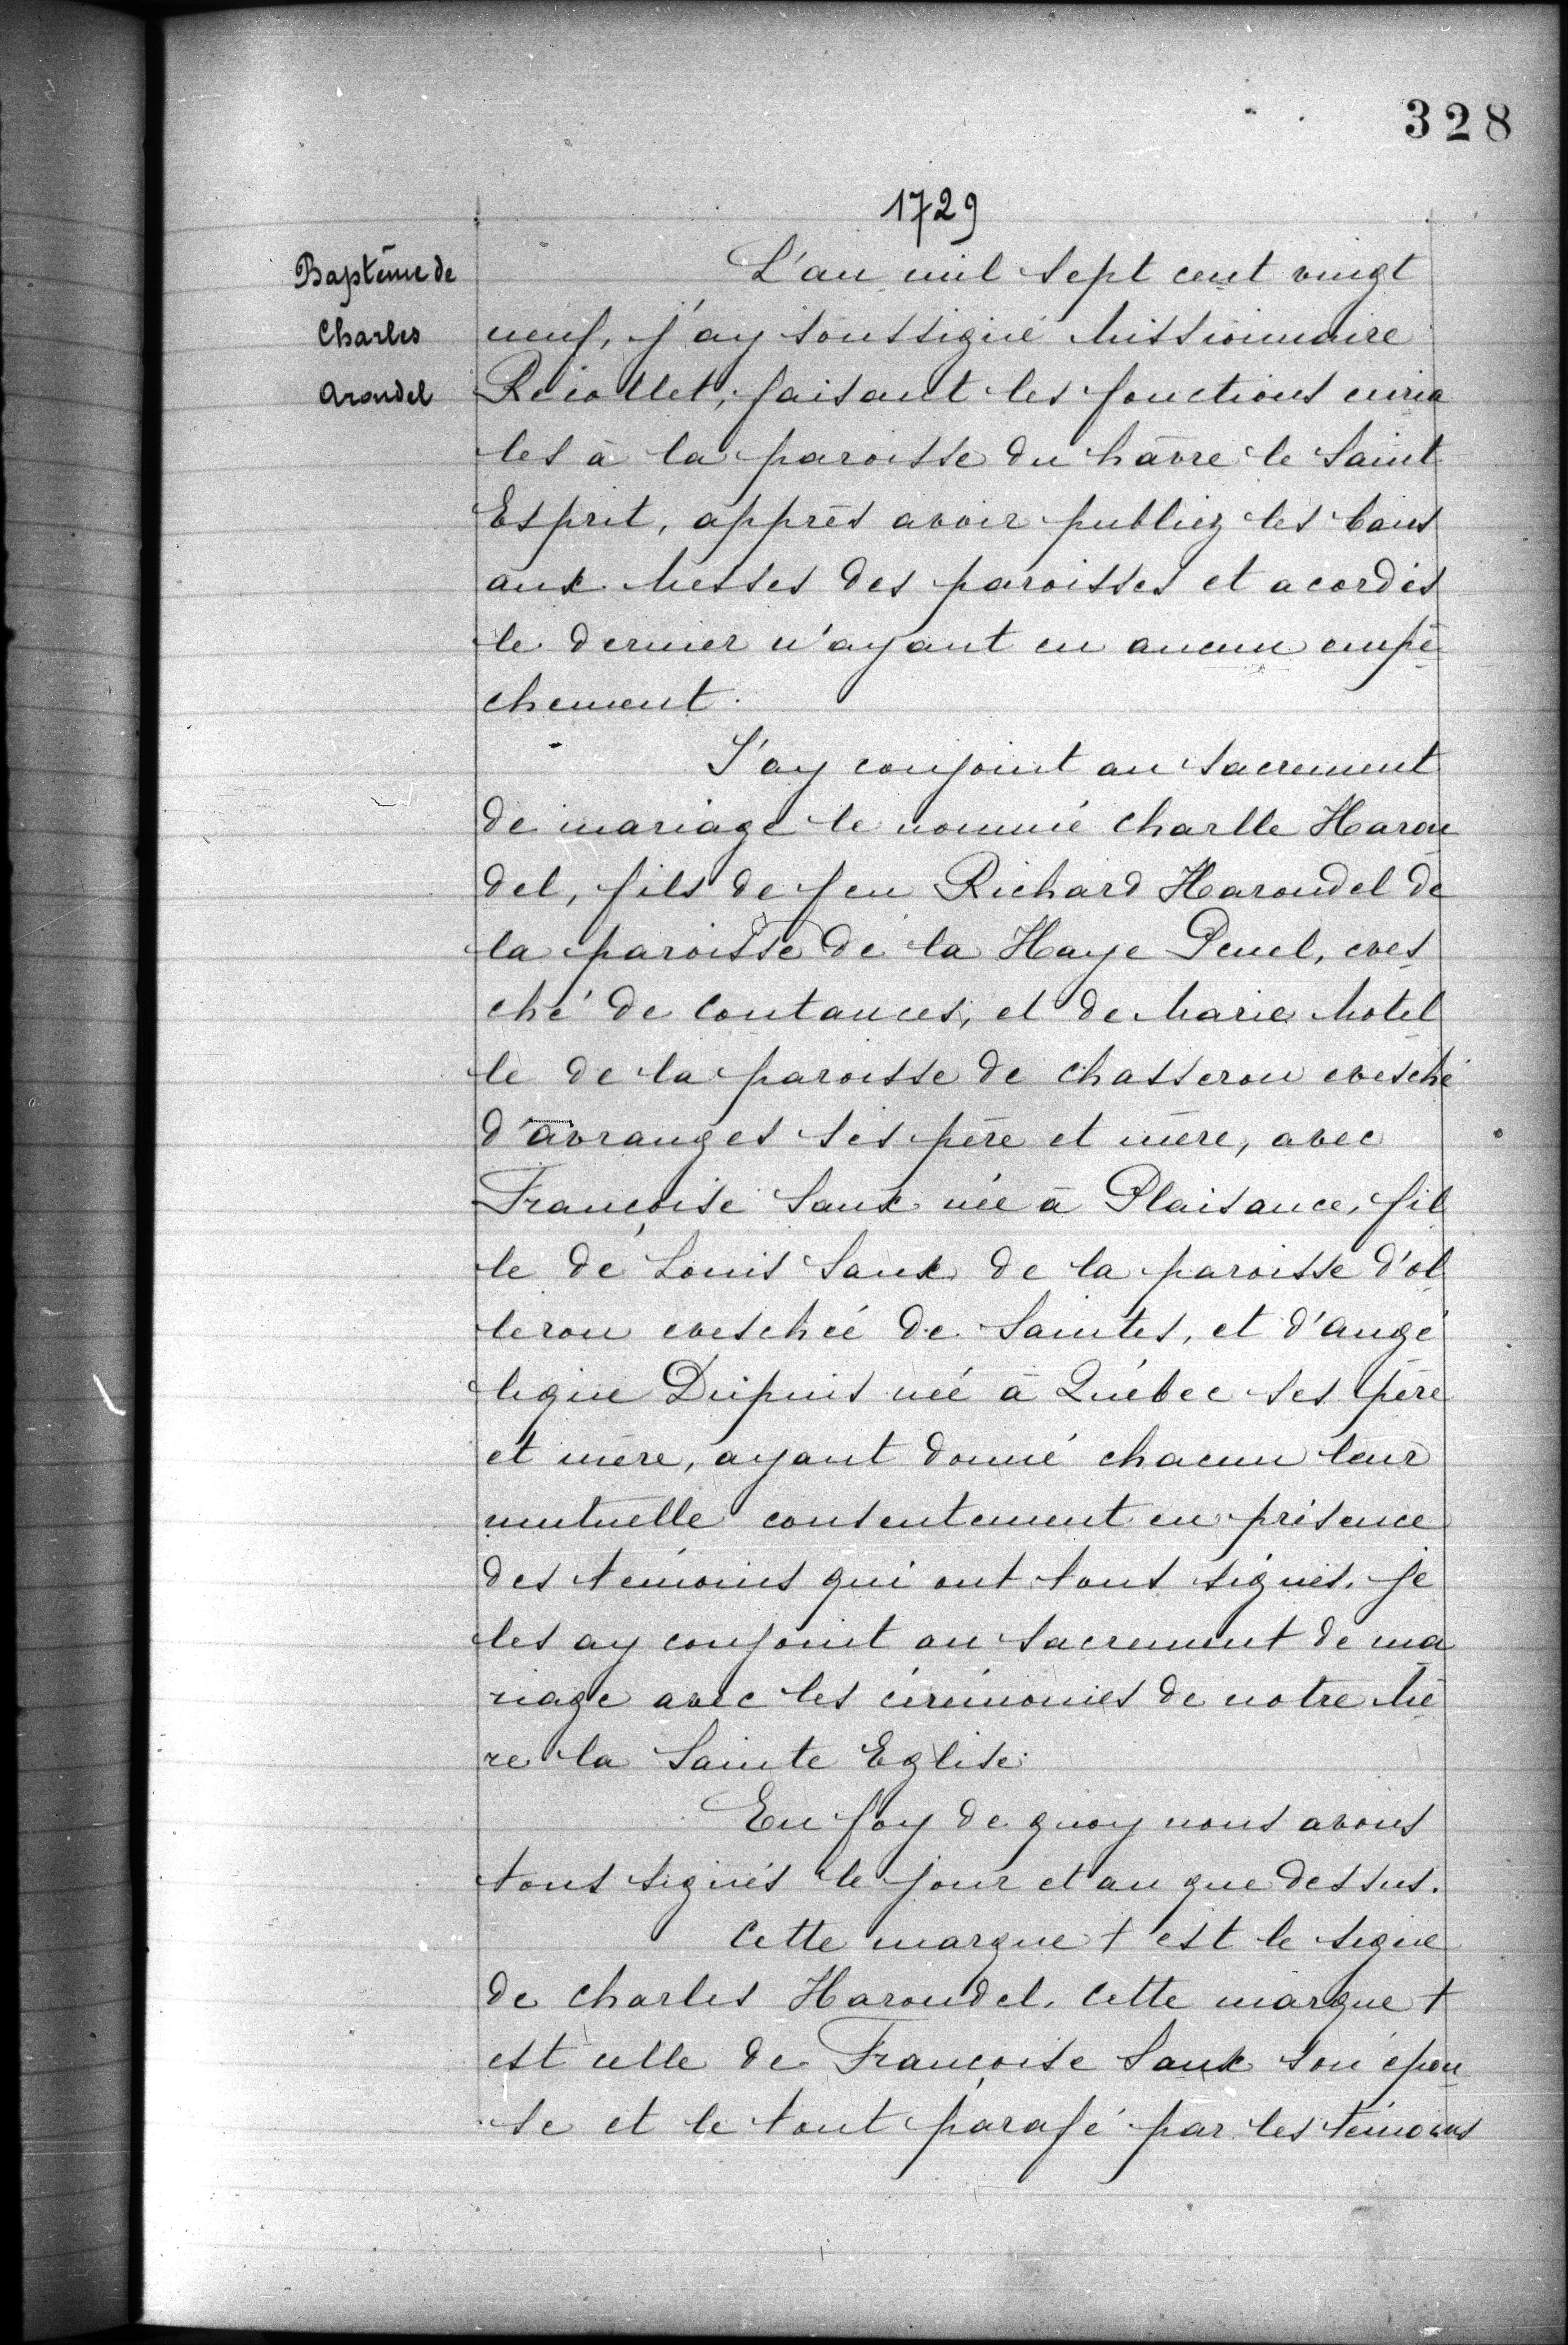 328
1729
Baptême de
Charles
Arondel
L'an mil sept cent vingt
neuf, j'ay soussigné Missionnaire
Récollet, faisant les fonctions curia
les à la paroisse du hâvre le Saint
Esprit, apprès avoir publiez les bans
aux Messes des paroisses et acordés
le dernier n'ayant eu aucun empê
chement.
J'ay conjoint au sacrement
de mariage le nommé Charlle Haron
del, fils de feu Richard Harondel de
la paroisse de la Haye Penel, eves
ché de Coutances, et de Marie Motel
le de la paroisse de Chasseron evesché
d'avranges ses père et mère, avec
Françoise Saux née à Plaisance, fil
le de Louis Saux de la paroisse d'ol
leron eveschéé de Saintes, et d'angé
lique Dupuis néé à Québec ses père
et mère, ayant donné chacun leur
mutuelle consentement en présence
des témoins qui ont tous signés. Je
les ay conjoint au sacrement de ma
riage avec les cérémonies de notre Mè
re la Sainte Eglise.
En foy de quoy nous avons
tous signés le jour et an que dessus.
Cette marque + est le signe
de Charles Harondel. Cette marque +
est celle de Françoise Saux son épou
se et le tout parafé par les témoins